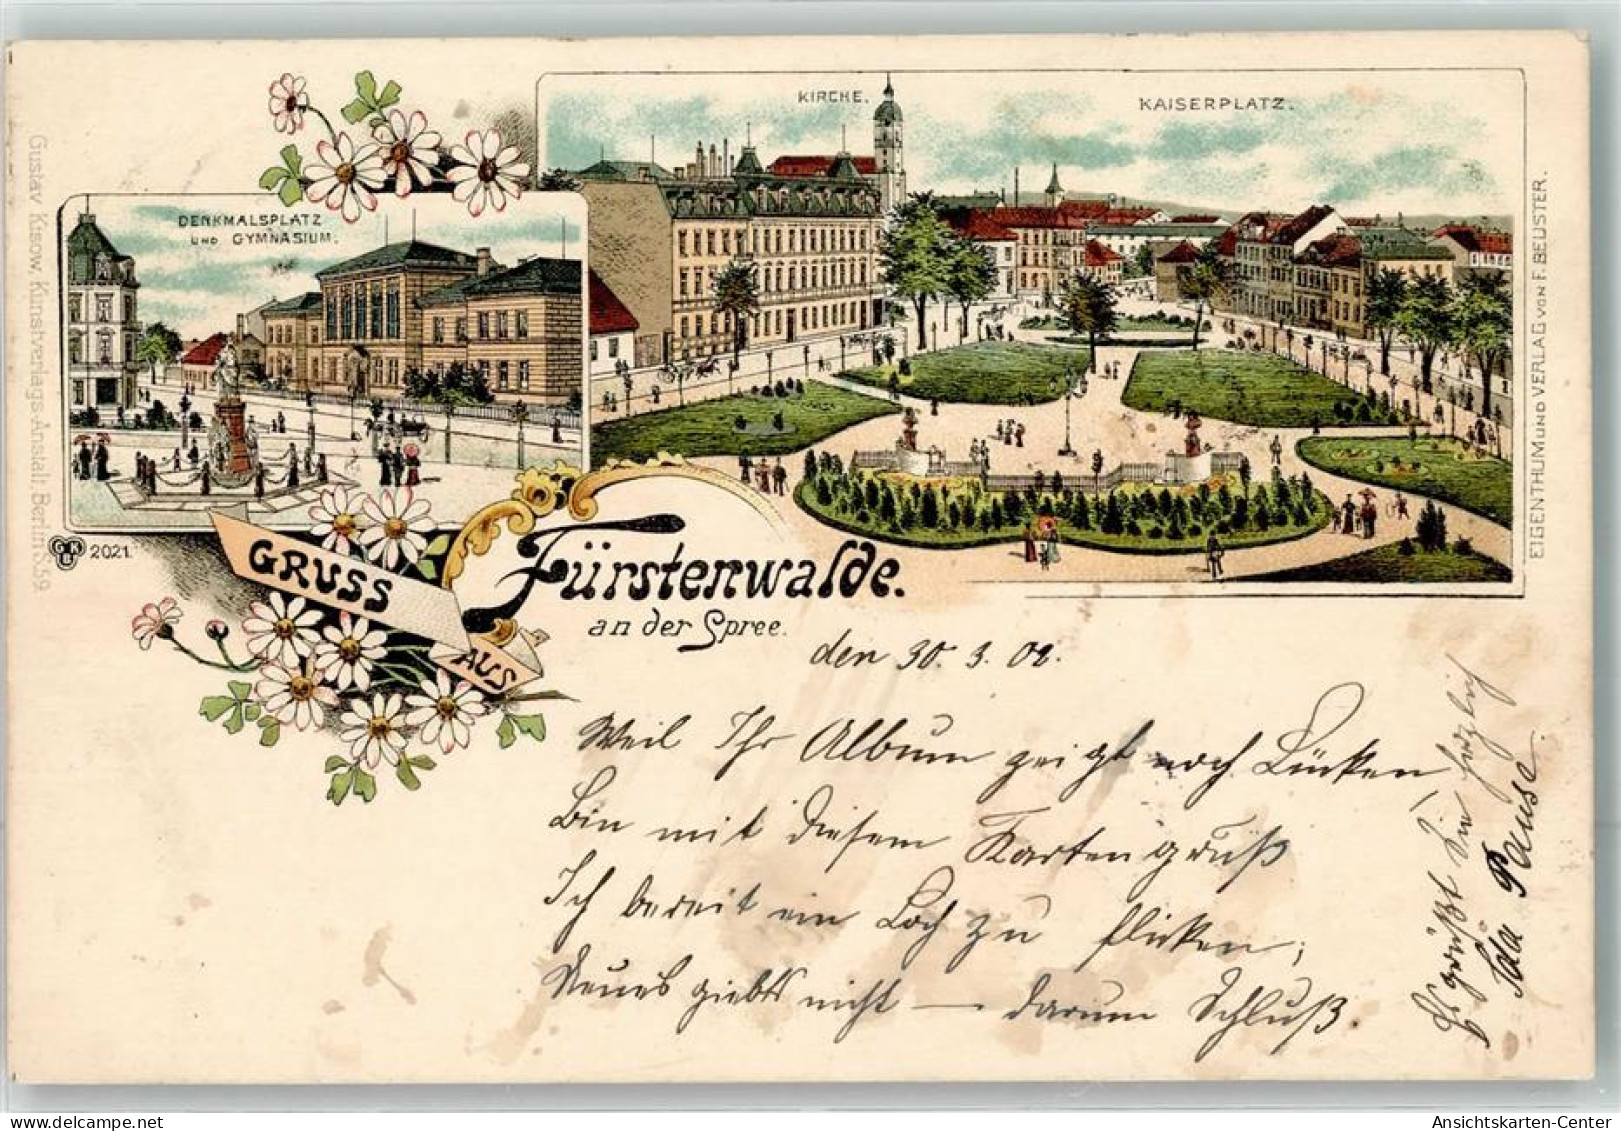 KIRCHE.
KAISERPLATZ.
DENKMALSPLATZ
UND GYMNASIUM.
EIGENTHUM UND VERLAG VON F. BEUSTER.
Gustav Kisow, Kunstverlags-Anstalt, Berlin S.59.
GKB 2021.
GRUSS
AUS
Fürstenwalde.
an der Spree.
den 30. 3. 02.
Weil Ihr Album zeigt noch Lücken,
Bin mit diesem Kartengruß
Ich bereit ein Loch zu flicken;
Neues giebts nicht — darum Schluß.
Es grüßt Sie herzlich
Ida Pause.
Ansichtskarten-Center